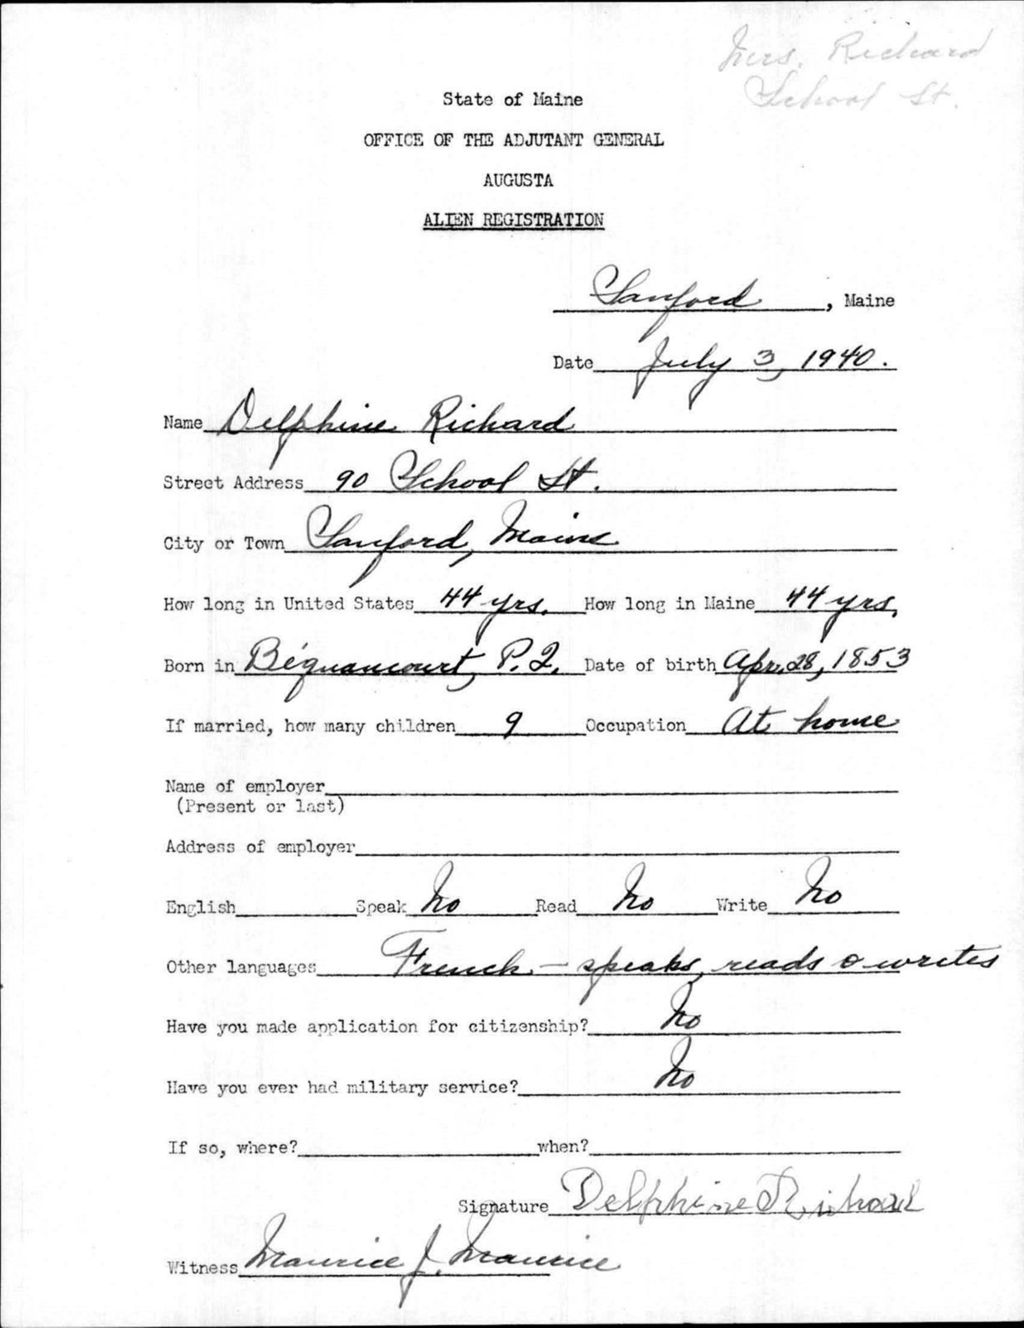 Mrs. Richard
School St.
State of Maine
OFFICE OF THE ADJUTANT GENERAL
AUGUSTA
ALIEN REGISTRATION
Sanford, Maine
Date July 3, 1940.
Name Delphine Richard
Street Address 90 School St.
City or Town Sanford, Maine
How long in United States 44 yrs. How long in Maine 44 yrs.
Born in Béquancourt, P.Q. Date of birth Apr. 28, 1853
If married, how many children 9 Occupation At home
Name of employer
(Present or last)
Address of employer
English Speak No Read No Write No
Other languages French - speaks, reads & writes
Have you made application for citizenship? No
Have you ever had military service? No
If so, where? when?
Signature Delphine Richard
Witness Maurice J. Maurice